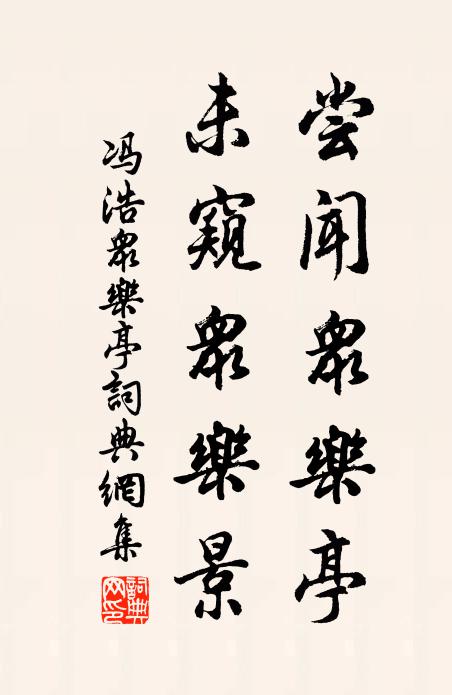 尝闻眾樂亭
未窺眾樂景
冯浩眾樂亭詞典網集
詞典网印